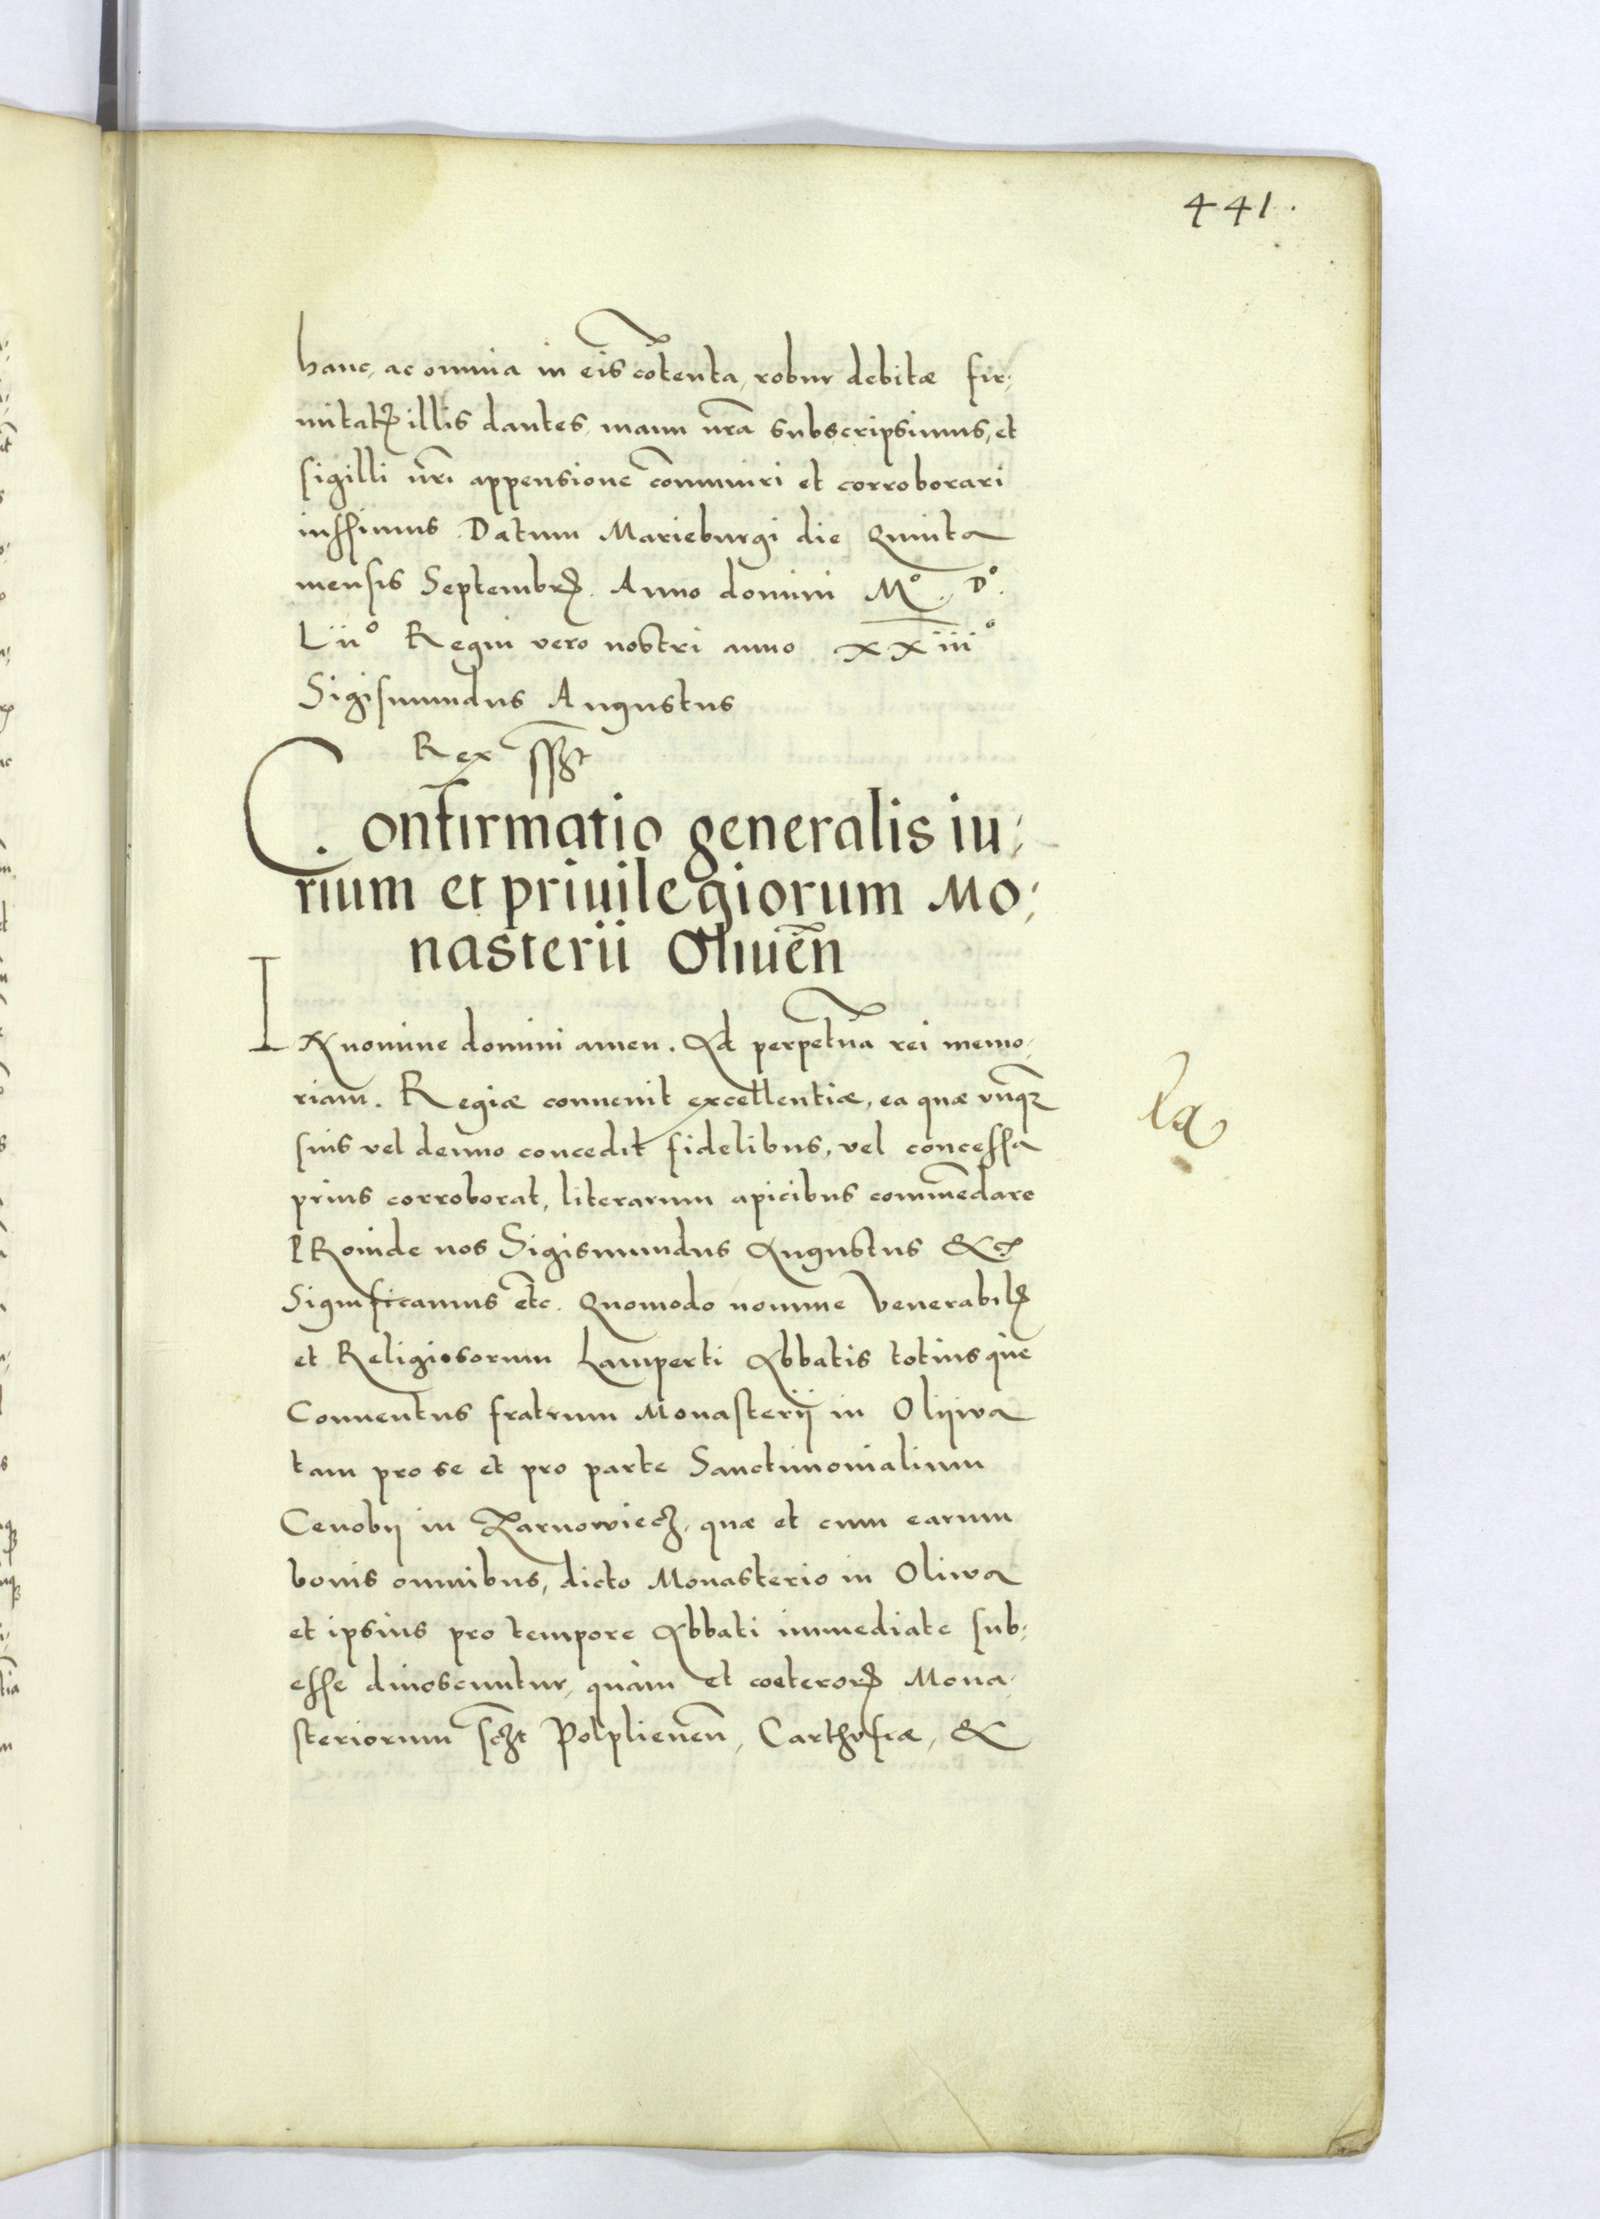 441.
hanc, ac omnia in eis cōtenta, robur debitæ fir:
mitatꝭ illis dantes, manu nr̄a subscripsimus, et
sigilli nr̄i appensione com̄uniri et corroborari
iussimus. Datum Marieburgi die Quinta
mensis Septembrꝭ. Anno domini M°. D°.
Lii° Regni vero nostri anno XXiii°
Sigismundus Augustus
Rex sszt
Confirmatio generalis iu:
rium et priuilegiorum Mo:
nasterii Oliueñ
IN nomine domini amen. Ad perpetuā rei memo,
riam. Regiæ conuenit excellentiæ, ea quæ vnqz
suis vel denuo concedit fidelibus, vel concessa
prius corroborat, literarum apicibus com̄edare
PRoinde nos Sigismundus Augustus &c
Significamus etc̄. Quomodo nomine Venerabilꝭ
et Religiosorum Lamperti Abbatis totiusque
Conuentus fratrum Monasterij in Olijwa
tam pro se et pro parte Sanctimonialium
Cenobij in Zarnowiecz, quæ et cum earum
bonis omnibus, dicto Monasterio in Oliwa
et ipsius pro tempore Abbati immediate sub:
esse dinoscuntur, quàm et cœterorꝭ Mona,
steriorum sczt Polplieneñ, Carthusiæ, &